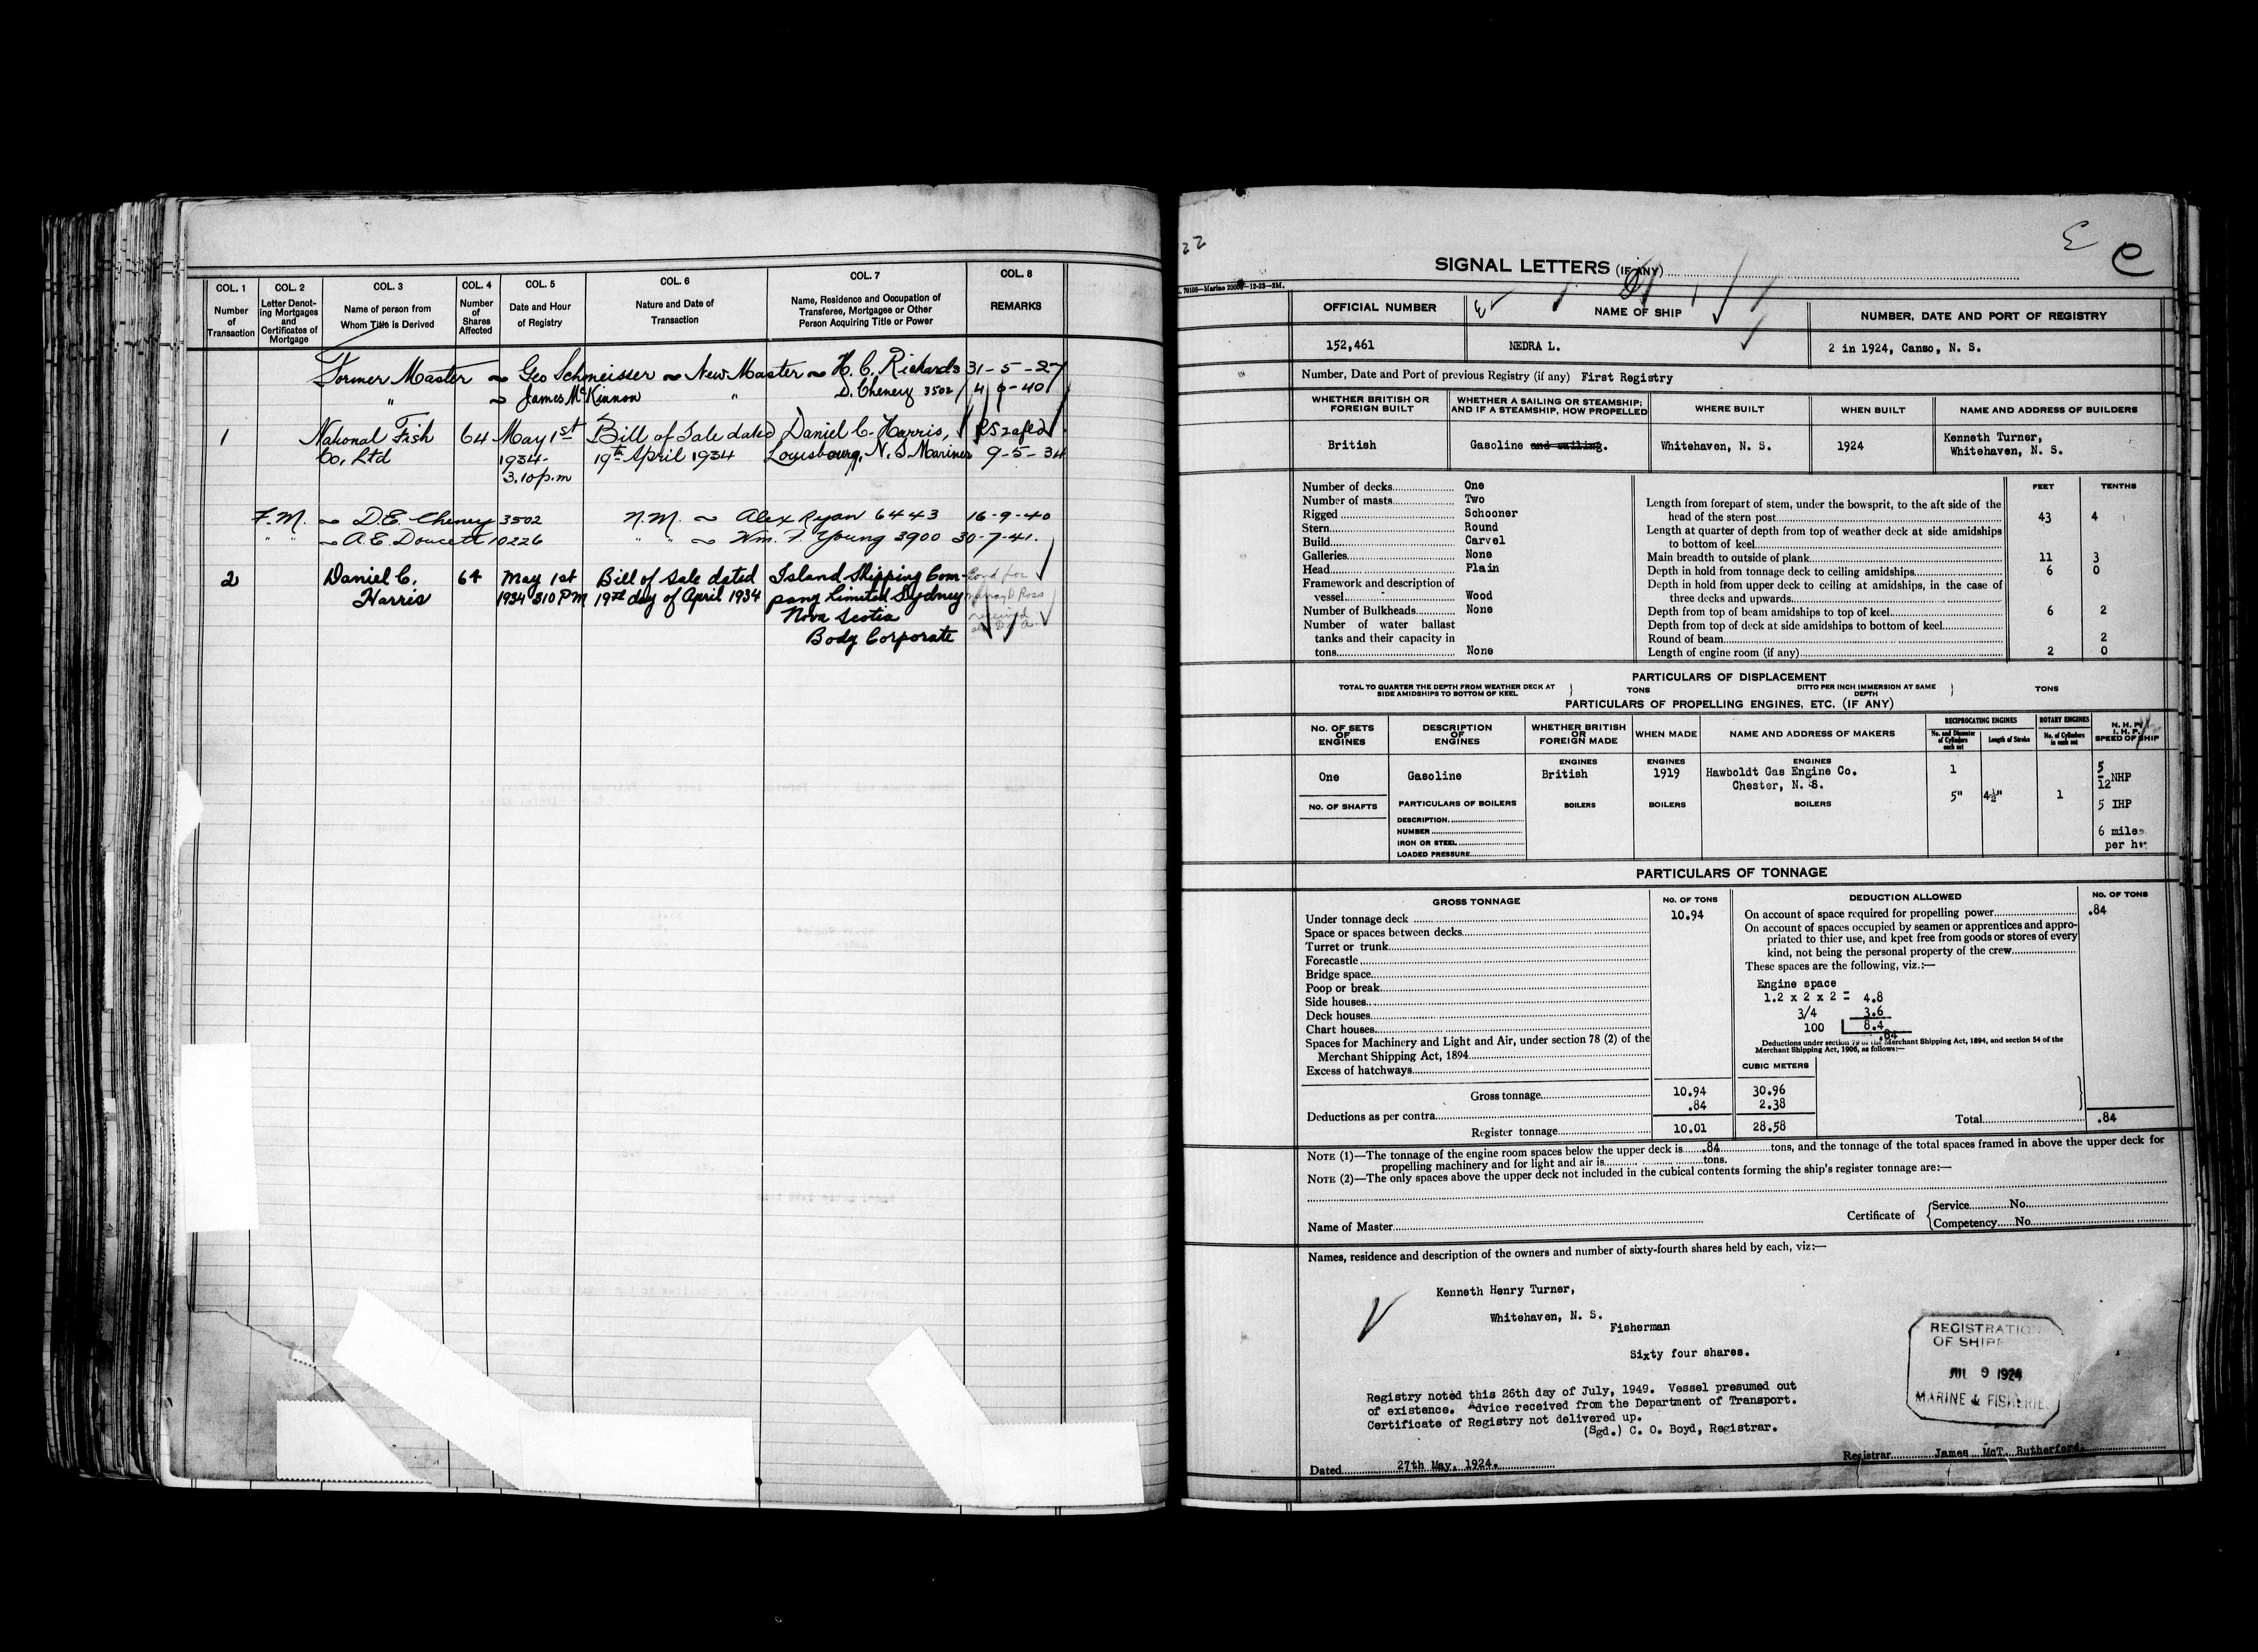 COL. 1 COL. 2 COL. 3 COL. 4 COL. 5 COL. 6 COL. 7 COL. 8
Number of Transaction
Letter Denoting Mortgages and Certificates of Mortgage
Name of person from Whom Title is Derived
Number of Shares Affected
Date and Hour of Registry
Nature and Date of Transaction
Name, Residence and Occupation of Transferee, Mortgagee or Other Person Acquiring Title or Power
REMARKS
Former Master ~ Geo Schmeisser ~ New Master ~ H. C. Richards 31-5-27
" ~ James McKinnon " D. Cheney 3502 4/9-40
1 National Fish 64 May 1st Bill of Sale dated Daniel C. Harris,
Co, Ltd 1934- 19th April 1934 Louisbourg, N. S Mariner 9-5-34
3.10 p.m
F.M. ~ D.E. Cheney 3502 N.M. ~ Alex Ryan 6443 16-9-40
" " ~ A.E. Doucett 10226 " " ~ Wm. F. Young 3900 30-7-41.
2 Daniel C. 64 May 1st Bill of Sale dated Island Shipping Com-
Harris 1934 310 PM 19th day of April 1934 pany Limited Sydney
Nova Scotia
Body Corporate
22
E e
SIGNAL LETTERS (IF ANY)
70108—Marine
OFFICIAL NUMBER NAME OF SHIP NUMBER, DATE AND PORT OF REGISTRY
152,461 NEDRA L. 2 in 1924, Canso, N. S.
Number, Date and Port of previous Registry (if any) First Registry
WHETHER BRITISH OR FOREIGN BUILT
WHETHER A SAILING OR STEAMSHIP; AND IF A STEAMSHIP, HOW PROPELLED
WHERE BUILT
WHEN BUILT
NAME AND ADDRESS OF BUILDERS
British Gasoline and sailing. Whitehaven, N. S. 1924 Kenneth Turner,
Whitehaven, N. S.
Number of decks One
Number of masts Two
Rigged Schooner
Stern Round
Build Carvel
Galleries None
Head Plain
Framework and description of
vessel Wood
Number of Bulkheads None
Number of water ballast
tanks and their capacity in
tons None
FEET TENTHS
Length from forepart of stem, under the bowsprit, to the aft side of the
head of the stern post 43 4
Length at quarter of depth from top of weather deck at side amidships
to bottom of keel
Main breadth to outside of plank 11 3
Depth in hold from tonnage deck to ceiling amidships 6 0
Depth in hold from upper deck to ceiling at amidships, in the case of
three decks and upwards
Depth from top of beam amidships to top of keel 6 2
Depth from top of deck at side amidships to bottom of keel
Round of beam 2
Length of engine room (if any) 2 0
PARTICULARS OF DISPLACEMENT
TOTAL TO QUARTER THE DEPTH FROM WEATHER DECK AT SIDE AMIDSHIPS TO BOTTOM OF KEEL } TONS
DITTO PER INCH IMMERSION AT SAME DEPTH } TONS
PARTICULARS OF PROPELLING ENGINES, ETC. (IF ANY)
No. OF SETS OF ENGINES
DESCRIPTION OF ENGINES
WHETHER BRITISH OR FOREIGN MADE
WHEN MADE
NAME AND ADDRESS OF MAKERS
RECIPROCATING ENGINES
No. and Diameter of Cylinders each set
Length of Stroke
ROTARY ENGINES
No. of Cylinders in each set
N. H. P.
I. H. P.
SPEED OF SHIP
ENGINES ENGINES ENGINES
One Gasoline British 1919 Hawboldt Gas Engine Co.
Chester, N. S.
1
5" 4½" 1
5
12 NHP
5 IHP
6 miles
per hr.
NO. OF SHAFTS PARTICULARS OF BOILERS BOILERS BOILERS BOILERS
DESCRIPTION
NUMBER
IRON OR STEEL
LOADED PRESSURE
PARTICULARS OF TONNAGE
GROSS TONNAGE No. OF TONS DEDUCTION ALLOWED No. OF TONS
Under tonnage deck 10.94
Space or spaces between decks
Turret or trunk
Forecastle
Bridge space
Poop or break
Side houses
Deck houses
Chart houses
Spaces for Machinery and Light and Air, under section 78 (2) of the
Merchant Shipping Act, 1894
Excess of hatchways
Gross tonnage 10.94 30.96
Deductions as per contra .84 2.38
Register tonnage 10.01 28.58
On account of space required for propelling power .84
On account of spaces occupied by seamen or apprentices and appro-
priated to thier use, and kpet free from goods or stores of every
kind, not being the personal property of the crew
These spaces are the following, viz.:—
Engine space
1.2 x 2 x 2 = 4.8
3/4 3.6
100 8.4
.84
Deductions under section 79 of the Merchant Shipping Act, 1894, and section 54 of the
Merchant Shipping Act, 1906, as follows:—
CUBIC METERS
Total .84
NOTE (1)—The tonnage of the engine room spaces below the upper deck is .84 tons, and the tonnage of the total spaces framed in above the upper deck for
propelling machinery and for light and air is tons.
NOTE (2)—The only spaces above the upper deck not included in the cubical contents forming the ship's register tonnage are:—
Name of Master
Certificate of { Service No.
Competency No.
Names, residence and description of the owners and number of sixty-fourth shares held by each, viz:—
Kenneth Henry Turner,
Whitehaven, N. S.
Fisherman
Sixty four shares.
Registry noted this 26th day of July, 1949. Vessel presumed out
of existence. Advice received from the Department of Transport.
Certificate of Registry not delivered up.
(Sgd.) C. O. Boyd, Registrar.
REGISTRATION
OF SHIPP
JUL 9 1924
MARINE & FISHERIE
Dated 27th May, 1924.
Registrar James McT. Rutherford.